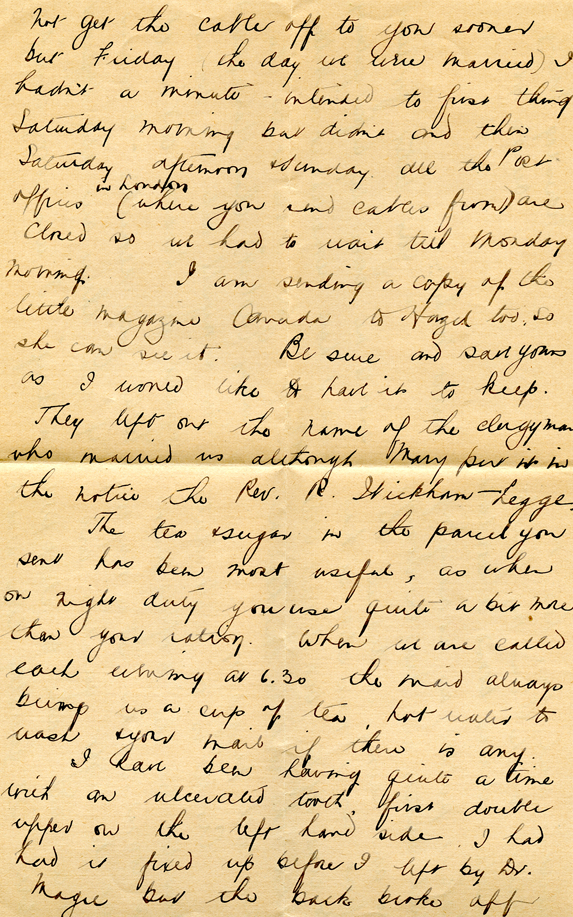 not get the cable off to you sooner
but Friday (the day we were married) I
hadn't a minute - intended to first thing
Saturday morning but didn't and then
Saturday afternoon & Sunday all the Post
offices in London (where you send cables from) are
closed so we had to wait till Monday
morning. I am sending a copy of the
little magazine Canada to Hazel too, so
she can see it. Be sure and save yours
as I would like to have it to keep.
They left out the name of the clergyman
who married us although Mary put it in
the notice the Rev. R. Wickham-Legge.
The tea & sugar in the parcel you
sent has been most useful, as when
on night duty you use quite a bit more
than your ration. When we are called
each evening at 6.30 the maid always
brings us a cup of tea, hot water to
wash & your mail if there is any.
I have been having quite a time
with an ulcerated tooth, first double
upper on the left hand side. I had
had it fixed up before I left by Dr.
Magee but the back broke off